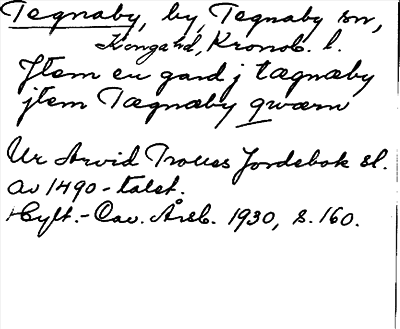 Tegnaby, by, Tegnaby sn,
Konga hd, Kronob. l.
Jtem en gard j tægnæby
jtem Tægnæby qwærn
Ur Arvid Trolles Jordebok sl.
av 1490-talet.
Hylt.-Cav. Årsb. 1930, s. 160.